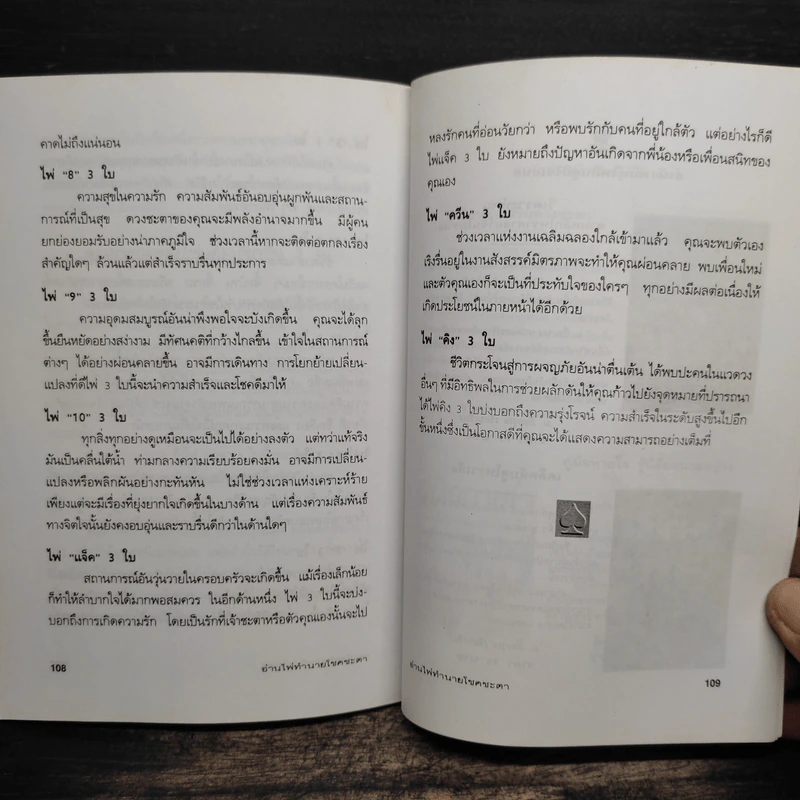 คาดไม่ถึงแน่นอน
ไพ่ "8" 3 ใบ
ความสุขในความรัก ความสัมพันธ์อันอบอุ่นผูกพันและสถาน-
การณ์ที่เป็นสุข ดวงชะตาของคุณจะมีพลังอำนาจมากขึ้น มีผู้คน
ยกย่องยอมรับอย่างน่าภาคภูมิใจ ช่วงเวลานี้หากจะติดต่อตกลงเรื่อง
สำคัญใดๆ ล้วนแล้วแต่สำเร็จราบรื่นทุกประการ
ไพ่ "9" 3 ใบ
ความอุดมสมบูรณ์อันน่าพึงพอใจจะบังเกิดขึ้น คุณจะได้ลุก
ขึ้นยืนหยัดอย่างสง่างาม มีทัศนคติที่กว้างไกลขึ้น เข้าใจในสถานการณ์
ต่างๆ ได้อย่างผ่อนคลายขึ้น อาจมีการเดินทาง การโยกย้ายเปลี่ยน-
แปลงที่ดีไพ่ 3 ใบนี้จะนำความสำเร็จและโชคดีมาให้
ไพ่ "10" 3 ใบ
ทุกสิ่งทุกอย่างดูเหมือนจะเป็นไปได้อย่างลงตัว แต่ทว่าแท้จริง
มันเป็นคลื่นใต้น้ำ ท่ามกลางความเรียบร้อยคงมั่น อาจมีการเปลี่ยน-
แปลงหรือพลิกผันอย่างกะทันหัน ไม่ใช่ช่วงเวลาแห่งเคราะห์ร้าย
เพียงแต่จะมีเรื่องที่ยุ่งยากใจเกิดขึ้นในบางด้าน แต่เรื่องความสัมพันธ์
ทางจิตใจนั้นยังคงอบอุ่นและราบรื่นดีกว่าในด้านใดๆ
ไพ่ "แจ็ค" 3 ใบ
สถานการณ์อันวุ่นวายในครอบครัวจะเกิดขึ้น แม้เรื่องเล็กน้อย
ก็ทำให้ลำบากใจได้มากพอสมควร ในอีกด้านหนึ่ง ไพ่ 3 ใบนี้จะบ่ง-
บอกถึงการเกิดความรัก โดยเป็นรักที่เจ้าชะตาหรือตัวคุณเองนั้นจะไป
108
อ่านไพ่ทำนายโชคชะตา
หลงรักคนที่อ่อนวัยกว่า หรือพบรักกับคนที่อยู่ใกล้ตัว แต่อย่างไรก็ดี
ไพ่แจ็ค 3 ใบ ยังหมายถึงปัญหาอันเกิดจากพี่น้องหรือเพื่อนสนิทของ
คุณเอง
ไพ่ "ควีน" 3 ใบ
ช่วงเวลาแห่งงานเฉลิมฉลองใกล้เข้ามาแล้ว คุณจะพบตัวเอง
เริงรื่นอยู่ในงานสังสรรค์มิตรภาพจะทำให้คุณผ่อนคลาย พบเพื่อนใหม่
และตัวคุณเองก็จะเป็นที่ประทับใจของใครๆ ทุกอย่างมีผลต่อเนื่องให้
เกิดประโยชน์ในภายหน้าได้อีกด้วย
ไพ่ "คิง" 3 ใบ
ชีวิตกระโจนสู่การผจญภัยอันน่าตื่นเต้น ได้พบปะคนในแวดวง
อื่นๆ ที่มีอิทธิพลในการช่วยผลักดันให้คุณก้าวไปยังจุดหมายที่ปรารถนา
ได้ไพ่คิง 3 ใบบ่งบอกถึงความรุ่งโรจน์ ความสำเร็จในระดับสูงขึ้นไปอีก
ขั้นหนึ่งซึ่งเป็นโอกาสดีที่คุณจะได้แสดงความสามารถอย่างเต็มที่
อ่านไพ่ทำนายโชคชะตา
109